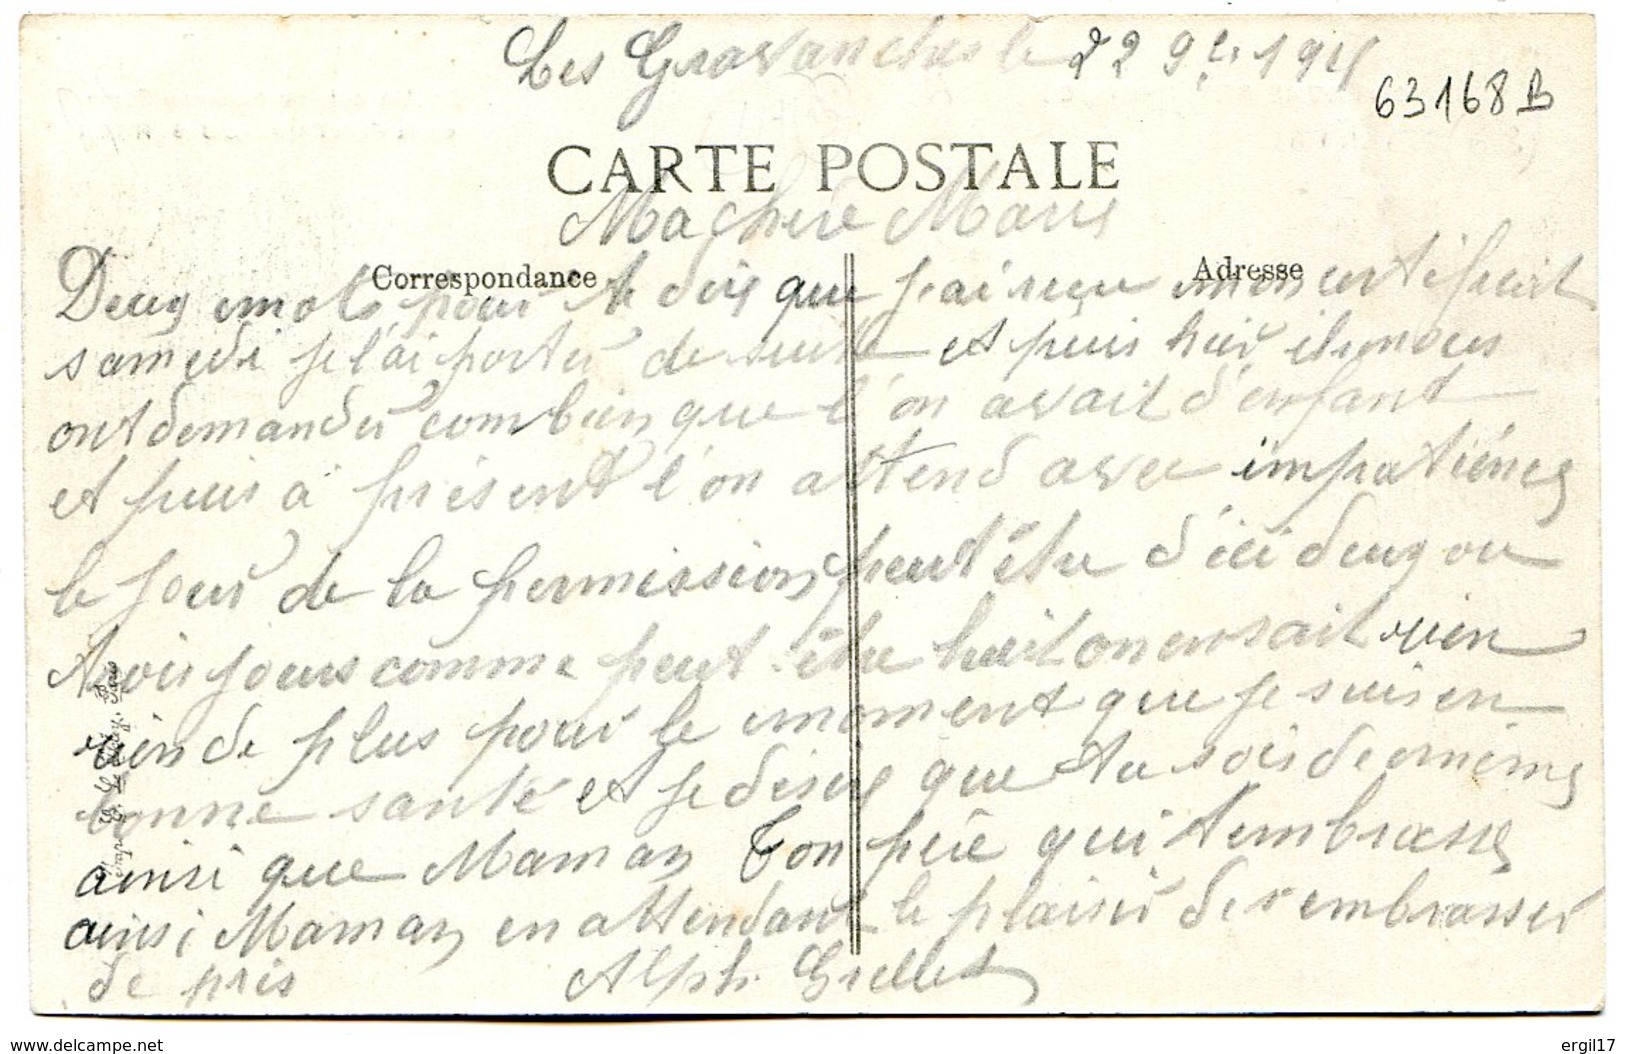 Les Gravanches le 22 9bre 191
63168 B
CARTE POSTALE
Ma chere Marie
Correspondance
Adresse
Deux mots pour te dire que j'ai reçu mon certificat
samedi je l'ai porter de suite et puis hier il nous
ont demander combien que l'on avait d'enfant
et puis a présent l'on attend avec impatience
le jour de la permission peut être d'ici deux ou
trois jours comme peut être huit on en sait rien
rien de plus pour le moment que je suis en
bonne santé et je désire que tu sois de même
ainsi que Maman Ton père qui t'embrasse
ainsi Maman en attendant le plaisir de s'embrasser
de pris Alph. Grellet
Paris
www.delcampe.net
ergil17